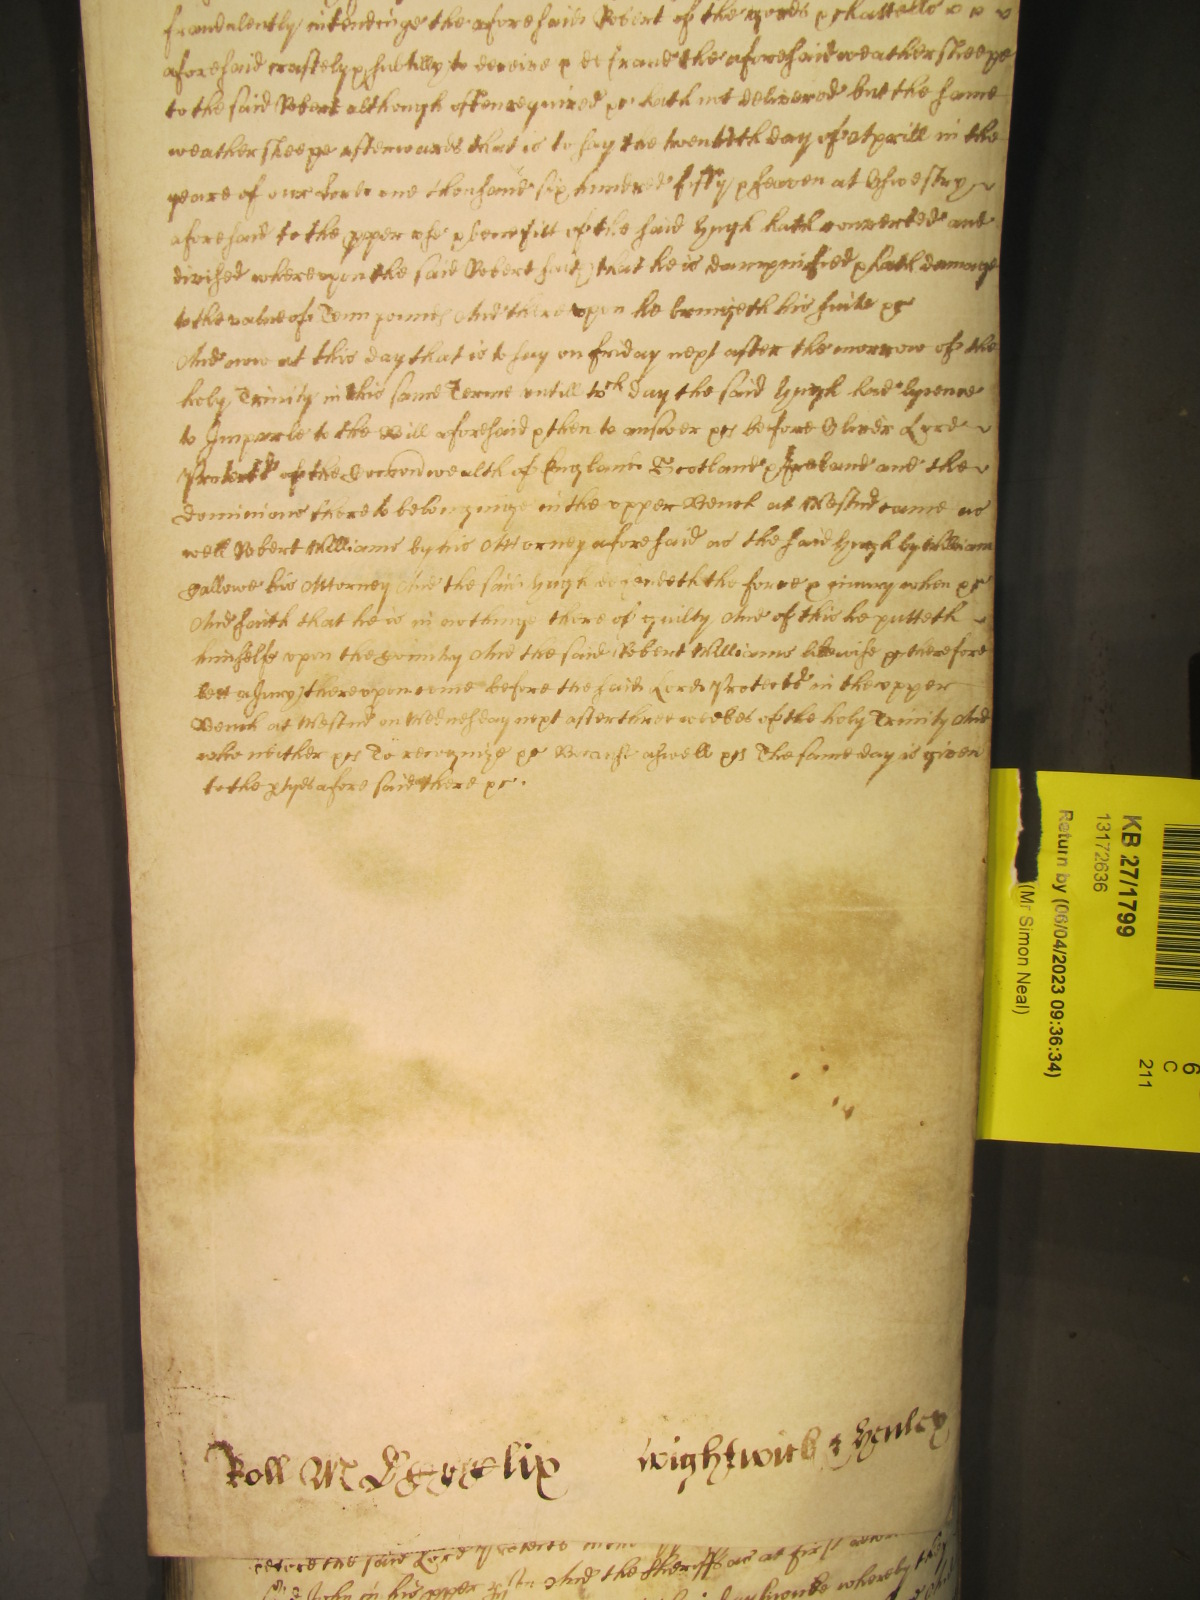 fraudulently intendinge the aforesaid Robert of the goods & chattells
aforesaid craftely & subtilly to deceive & defraude the aforesaid weather sheepe
to the said Robert although often required &c hath not delivered but the same
weather sheepe afterwards that is to say the twentith day of Aprill in the
yeare of our Lord one thousand six hundred fifty & seaven at Oswestry
aforesaid to the pper use & benefitt of the said Hugh hath converted and
disposed whereupon the said Robert saith that he is dampnified & hath damage
to the value of Tenn pounds And there upon he bringeth his suite &c
And now at this day that is to say on friday next after the morrow of the
holy Trinity in this same Terme untill wch day the said Hugh had lycence
to Imparle to the Bill aforesaid & then to answer &c before Oliver Lord
Protector of the Commonwealth of England Scotland & Ireland and the
dominions thereto belonginge in the upper Bench at Westmr came as
well Robert Williams by his Attorney aforesaid as the said Hugh by William
his Attorney And the said Hugh defendeth the force & iniury when &c
And saith that he is in nothinge there of guilty And of this he putteth
himselfe upon the Countrey And the said Robert Williams likewise & therefore
lett a Jury thereupon come before the said Lord Protector in the upper
Bench at Westmr on Wednesday next after three weekes of the holy Trinity And
who neither &c To recognize &c Because aswell &c The same day is given
to the ptyes afore said there &c.
Roll M Wightwick & Henley
before the said Lord
John in his pper psn And the Sheriff as at first
whereby
KB 27/1799
13172636
Return by (06/04/2023 09:36:34)
(Mr Simon Neal)
6
C
211